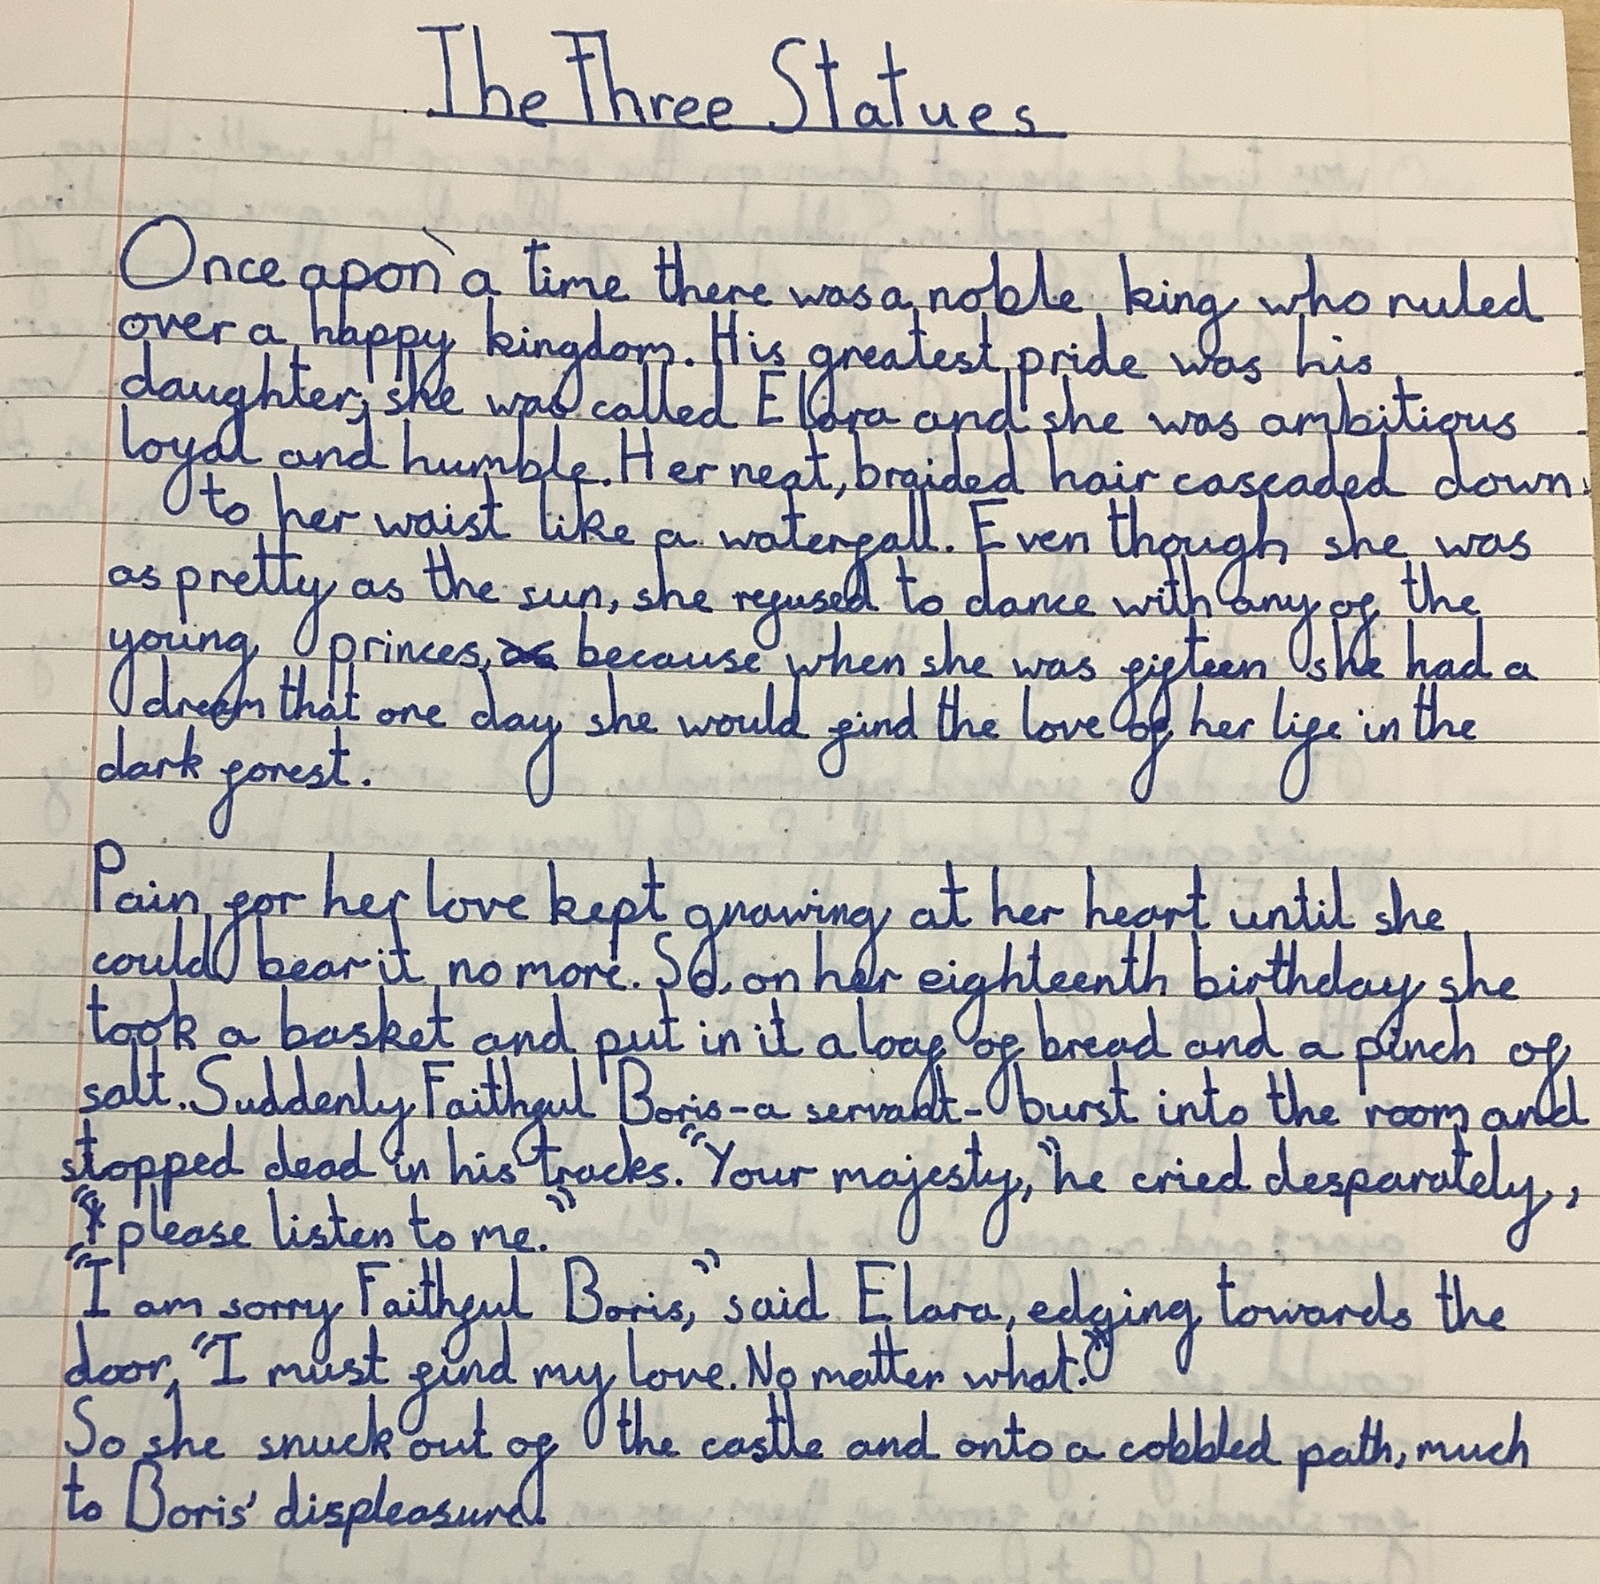 The Three Statues
Once apon a time there was a noble king who ruled
over a happy kingdom. His greatest pride was his
daughter; she was called Elara and she was ambitious
loyal and humble. Her neat, braided hair cascaded down
to her waist like a waterfall. Even though she was
as pretty as the sun, she refused to dance with any of the
young princes, because when she was fifteen she had a
dream that one day she would find the love of her life in the
dark forest.
Pain for her love kept gnawing at her heart until she
could bear it no more. So, on her eighteenth birthday she
took a basket and put in it a loaf of bread and a pinch of
salt. Suddenly Faithful Boris - a servant - burst into the room and
stopped dead in his tracks. "Your majesty," he cried desparately,
"please listen to me."
"I am sorry Faithful Boris," said Elara, edging towards the
door, "I must find my love. No matter what."
So she snuck out of the castle and onto a cobbled path, much
to Boris' displeasure.